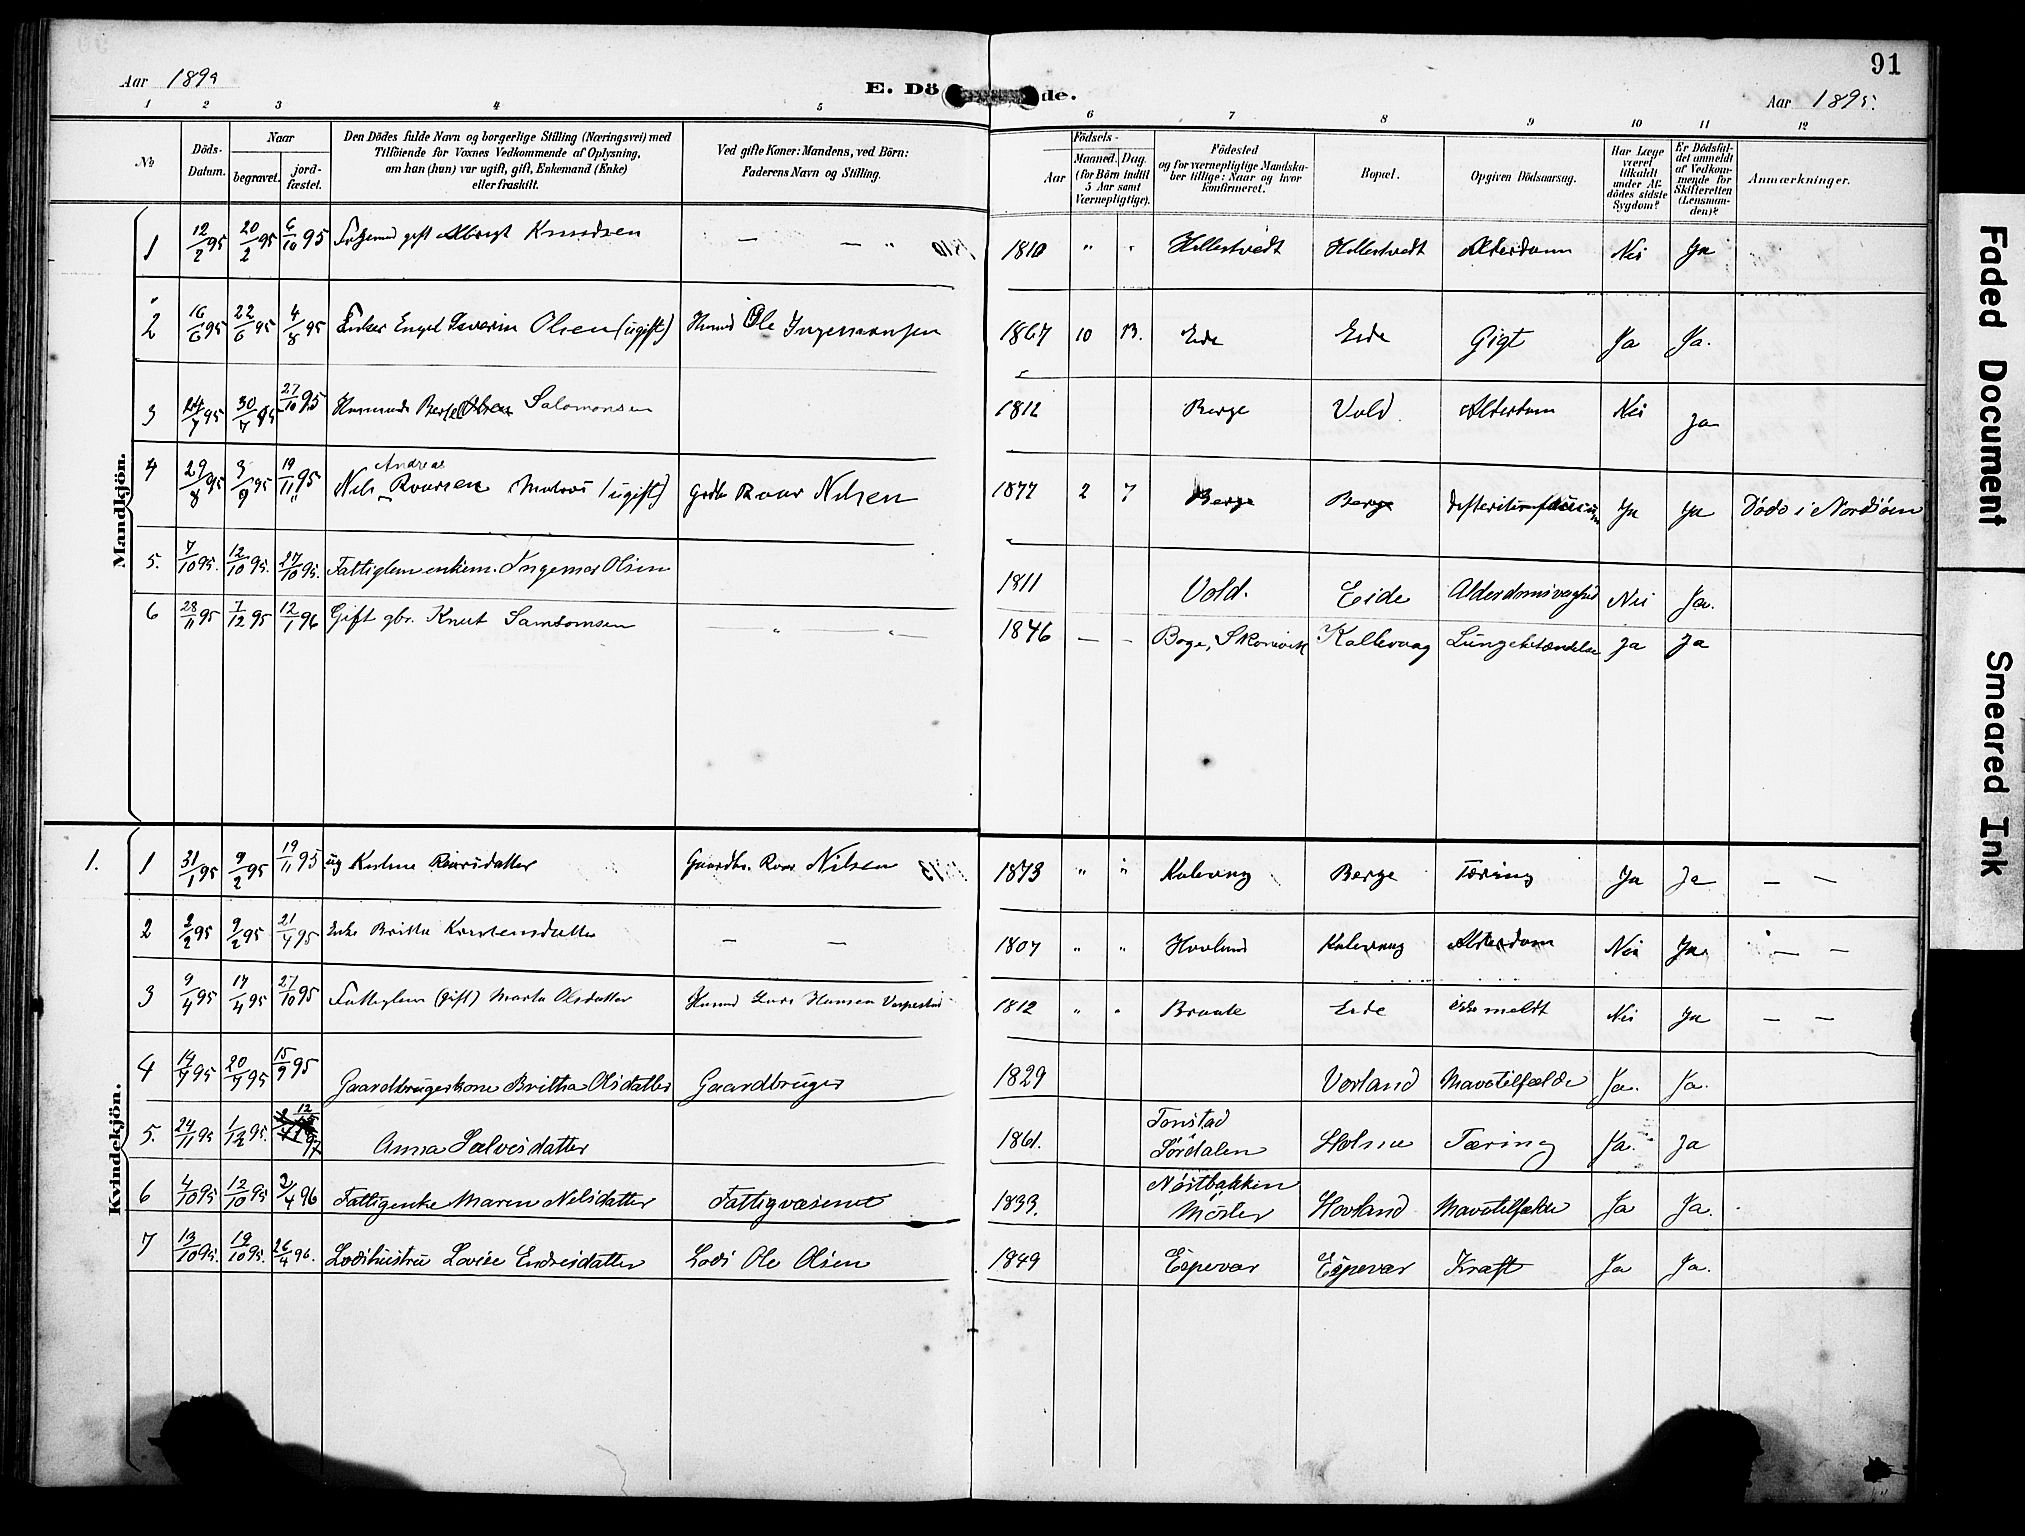 91
Aar 1895
E. Dö de.
Aar 1895.
1 2 3 4 5 6 7 8 9 10 11 12
№
Döds-Datum.
Naar
begravet.
jord-fæstet.
Den Dödes fulde Navn og borgerlige Stilling (Næringsvei) med
Tilföiende for Voxnes Vedkommende af Oplysning,
om han (hun) var ugift, gift, Enkemand (Enke)
eller fraskilt.
Ved gifte Koner: Mandens, ved Börn:
Faderens Navn og Stilling.
Födsels-
Aar
Maaned. Dag.
(for Börn indtil
5 Aar samt
Værnepligtige).
Födested
og for værnepligtige Mandska-
ber tillige: Naar og hvor
konfirmeret.
Bopæl.
Opgiven Dödsaarsag.
Har Læge
været
tilkaldt
under Af-
dödes sidste
Sygdom?
Er Dödsfal-
det anmeldt
af Vedkom-
mende for
Skifteretten
(Lensman-
den)?
Anmærkninger.
Mandkjön.
1 12/2 95 20/2 95 6/10 95 gift Albregt Knudsen — — " 1810 " " Hollestvedt Hollestvedt Alderdom Nei Ja
2 16/6 95 22/6 95 4/8 95 Fisker Engel Severin Olsen (ugift) Husmd Ole Ingemarsen 1867 10 13. Eide Eide Gigt Ja Ja.
3 24/7 95 30/7 95 27/10 95 Husmand Berge Olsen Salomonsen 1812 Berge Vold. Alderdom Nei Ja
4 29/8 95 3/9 95 19/11 95 Nils Andreas Roarsen Matros (ugift) Grdbr Roar Nilsen 1877 2 7 Berge Berge Ja Ja Döde i Nordsöen
5. 7/10 95. 12/10 95. 27/10 95. Fattiglem enkem. Ingemar Olsen 1811 Vold. Eide Alderdomsvaghed Nei Ja.
6 28/11 95 7/12 95 12/1 96 Gift gbr. Knut Samsonsen — " " — 1846 — — Boge, Skonevik Kallevaag Lungebetændelse Ja Ja
Kvindekjön.
1. 1 31/1 95 9/2 95 19/11 95 ug Roarsdatter Gaardbr. Roar Nilsen 1873 " " Kalevaag Berge Tæring Ja Ja — —
2 2/2 95 9/2 95 21/4 95 Enke Britta Karstensdatter — — 1807 " " Hovland Kalevaag Alderdom Nei Ja — —
3 9/4 95 17/4 95 27/10 95 Fattiglem (gift) Marta Olsdatter Husmd Lars Hansen 1812 " " Braate Eide ikke meldt Nei Ja — —
4 14/9 95 20/9 95 15/9 95 Gaardbrugerkone Britha Olsdatter Gaardbruger 1829 Vorland Mavetilfælde Ja. Ja.
5. 24/11 95 1/12 95. 12 97 Anna Salvesdatter 1861. Tonstad Sördalen Holme Tæring Ja. Ja
6 4/10 95 12/10 95 2/4 96 Fattigenke Maren Nilsdatter Fattigvæsenet 1833. Nöstbakken Möster Hovland Mavetilfælde Ja Ja.
7 13/10 95. 19/10 95. 26/4 96. Lodshustru Lovise Endresdatter Lods Ole Olsen 1849 Espevær Espevær Kræft Ja Ja.
Faded Document
Smeared Ink